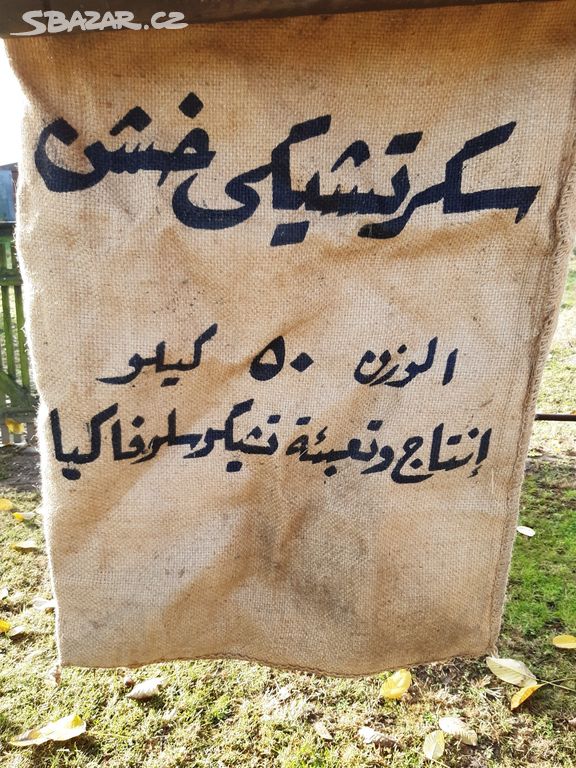 SBAZAR.CZ
سكر تشيكي خشن
الوزن ٥٠ كيلو
إنتاج وتعبئة تشيكوسلوفاكيا